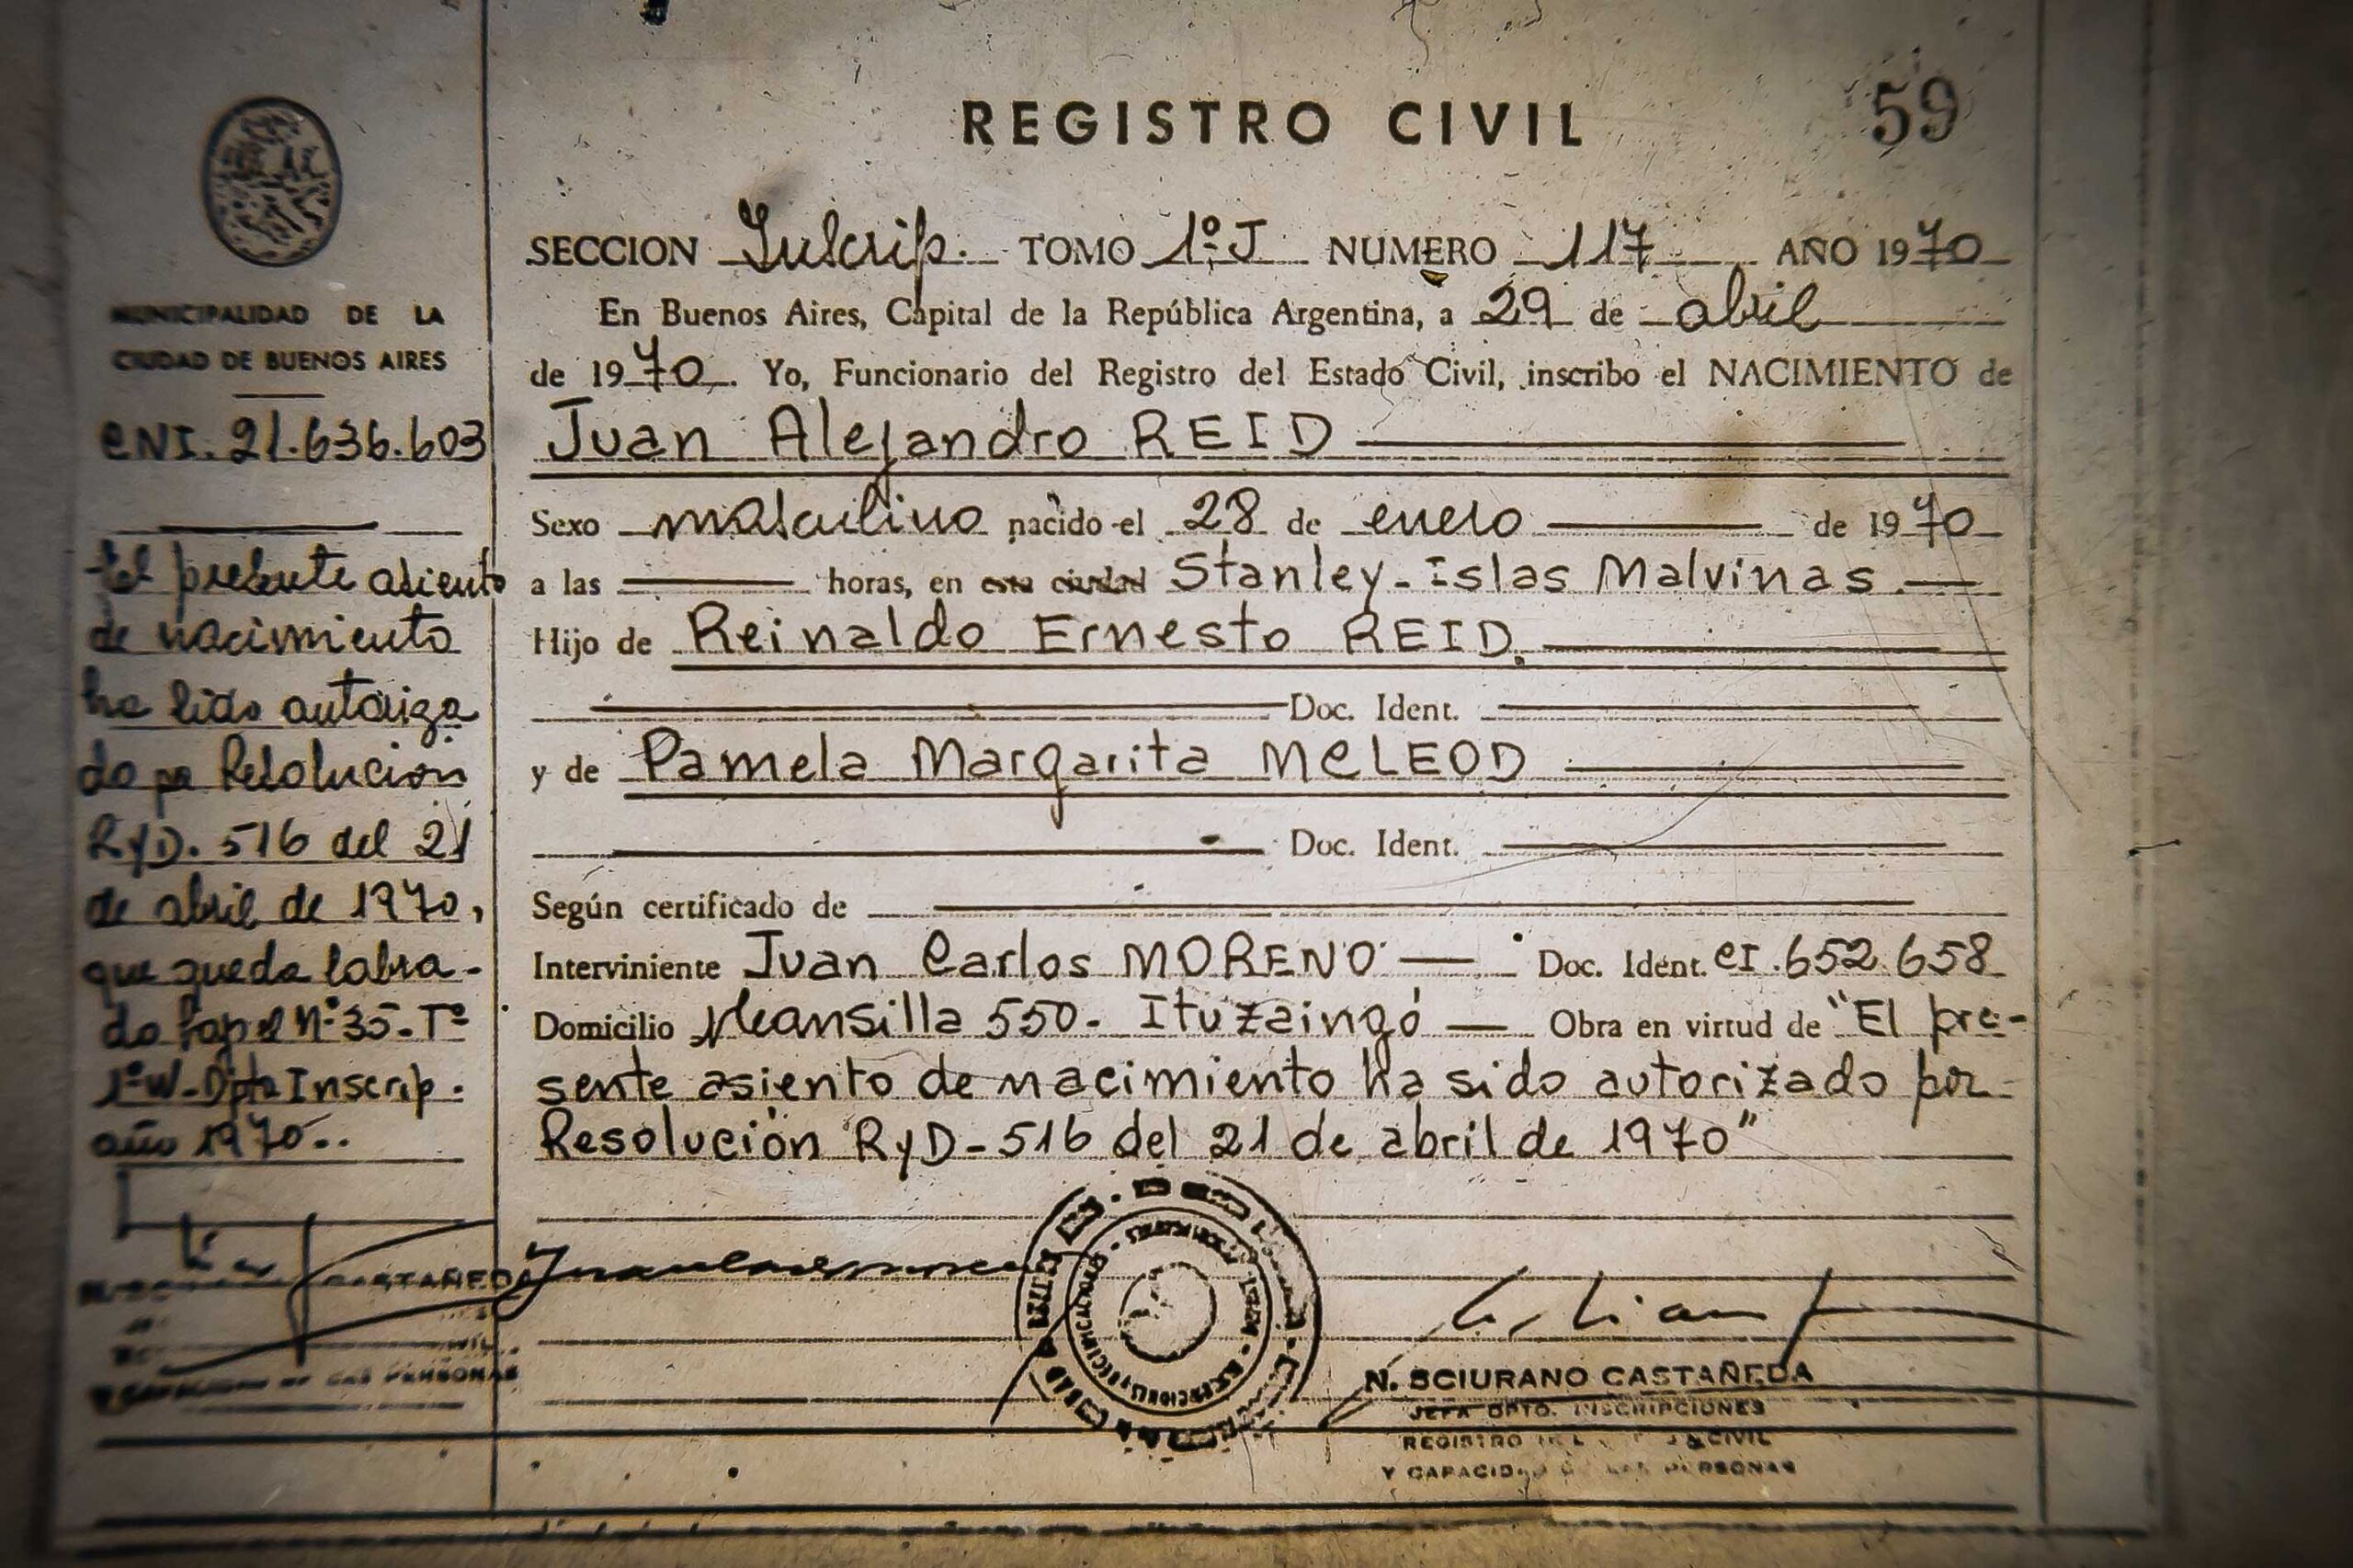 REGISTRO CIVIL
59
SECCION Inscrip. TOMO 1º J NUMERO 117 AÑO 1970
En Buenos Aires, Capital de la República Argentina, a 29 de abril
de 1970. Yo, Funcionario del Registro del Estado Civil, inscribo el NACIMIENTO de
Juan Alejandro REID
Sexo masculino nacido el 28 de enero de 1970
a las horas, en esta ciudad Stanley-Islas Malvinas.
Hijo de Reinaldo Ernesto REID.
Doc. Ident.
y de Pamela Margarita McLEOD
Doc. Ident.
Según certificado de
Interviniente Juan Carlos MORENO Doc. Ident. CI.652.658
Domicilio Mansilla 550- Ituzaingó Obra en virtud de "El pre-
sente asiento de nacimiento ha sido autorizado por
Resolución RyD-516 del 21 de abril de 1970"
N. SCIURANO CASTAÑEDA
JEFA DPTO. INSCRIPCIONES
REGISTRO CIVIL
Y CAPACIDAD DE LAS PERSONAS
MUNICIPALIDAD DE LA
CIUDAD DE BUENOS AIRES
CNI. 21.636.603
-El presente asiento
de nacimiento
ha sido autoriza
do por Resolución
RyD. 516 del 21
de abril de 1970,
que queda labra-
do bajo el Nº 35-Tº
1º W-Dpto Inscrip.
año 1970..
CASTAÑEDA
CIVIL
Y CAPACIDAD DE LAS PERSONAS